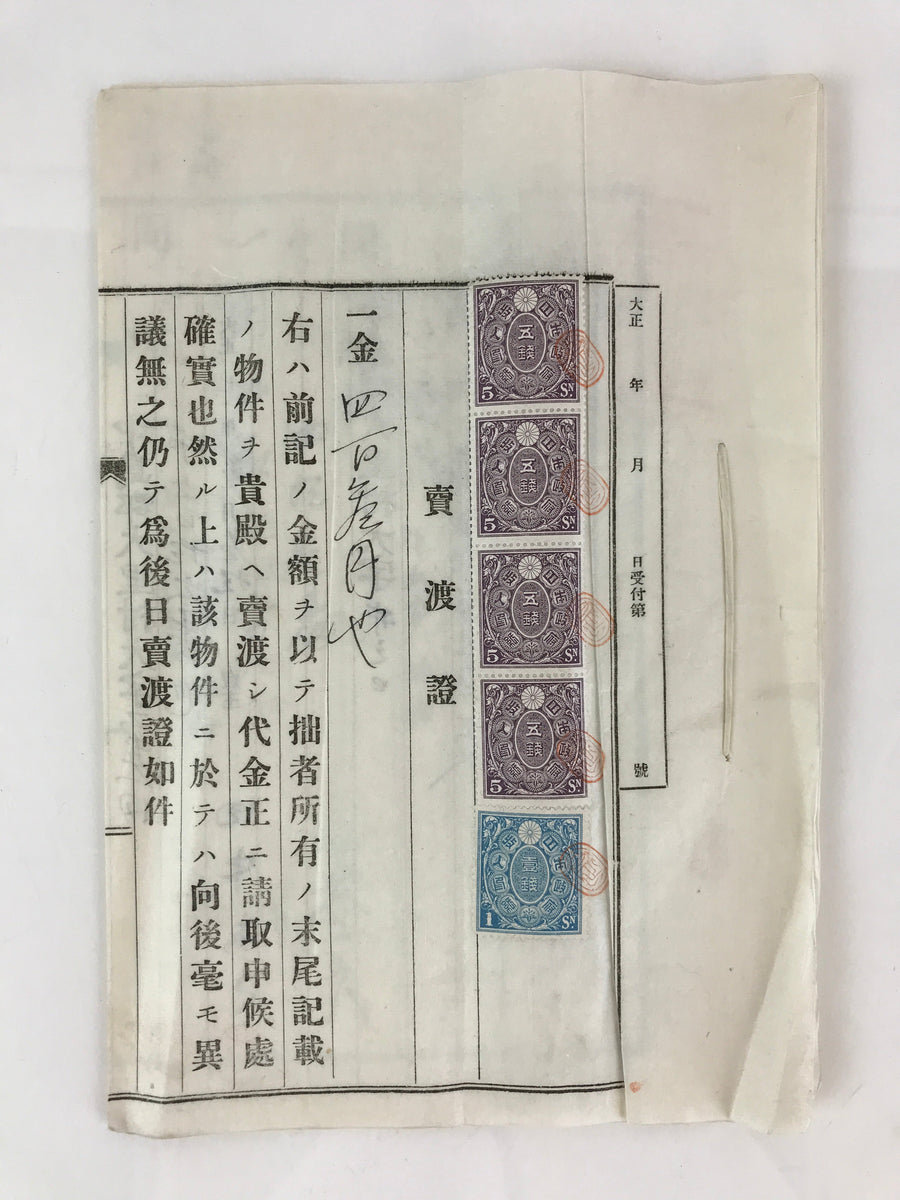 大正 年 月 日受付第 號
五錢
5 SN
五錢
5 SN
五錢
5 SN
五錢
5 SN
壹錢
1 SN
賣渡證
一金 四百叁円也
右ハ前記ノ金額ヲ以テ拙者所有ノ末尾記載
ノ物件ヲ貴殿ヘ賣渡シ代金正ニ請取申候處
確實也然ル上ハ該物件ニ於テハ向後毫モ異
議無之仍テ爲後日賣渡證如件